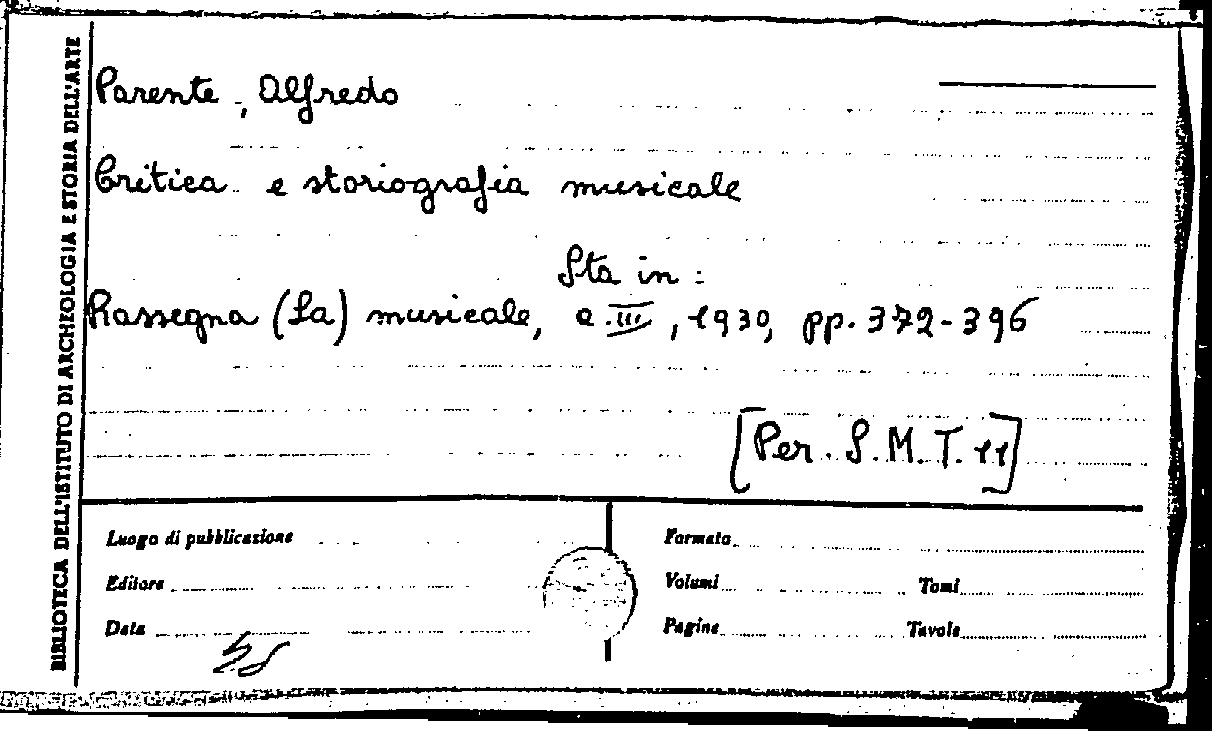 BIBLIOTECA DELL'ISTITUTO DI ARCHEOLOGIA E STORIA DELL'ARTE
Parente, Alfredo
Critica e storiografia musicale
Sta in:
Rassegna (La) musicale, a. III, 1930, pp. 372-396
[Per. S. M. T. 11]
Luogo di pubblicazione
Formato
Editore
Volumi Tomi
Data
Pagine Tavole